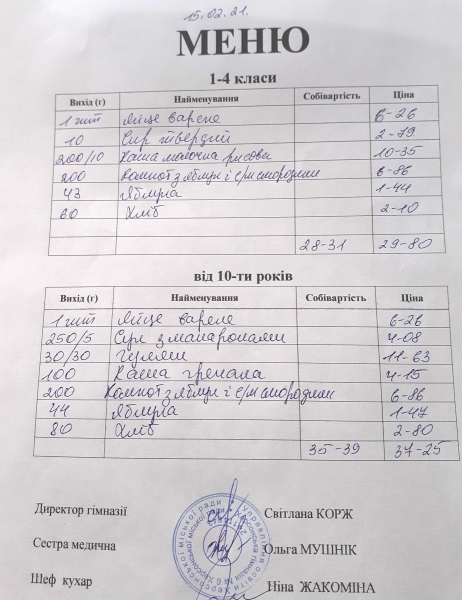 15.02.21.
МЕНЮ
1-4 класи
Вихід (г) Найменування Собівартість Ціна
1 шт Яйце варене 6-26
10 Сир твердий 2-79
200/10 Каша молочна рисова 10-35
200 Компот з яблук і с/м смородини 6-86
43 Яблука 1-44
60 Хліб 2-10
28-31 29-80
від 10-ти років
Вихід (г) Найменування Собівартість Ціна
1 шт Яйце варене 6-26
250/5 Суп з макаронами 4-08
30/30 Гуляш 11-63
100 Каша гречана 4-15
200 Компот з яблук і с/м смородини 6-86
44 Яблука 1-47
80 Хліб 2-80
35-39 37-25
Директор гімназії Світлана КОРЖ
Сестра медична Ольга МУШНІК
Шеф кухар Ніна ЖАКОМІНА